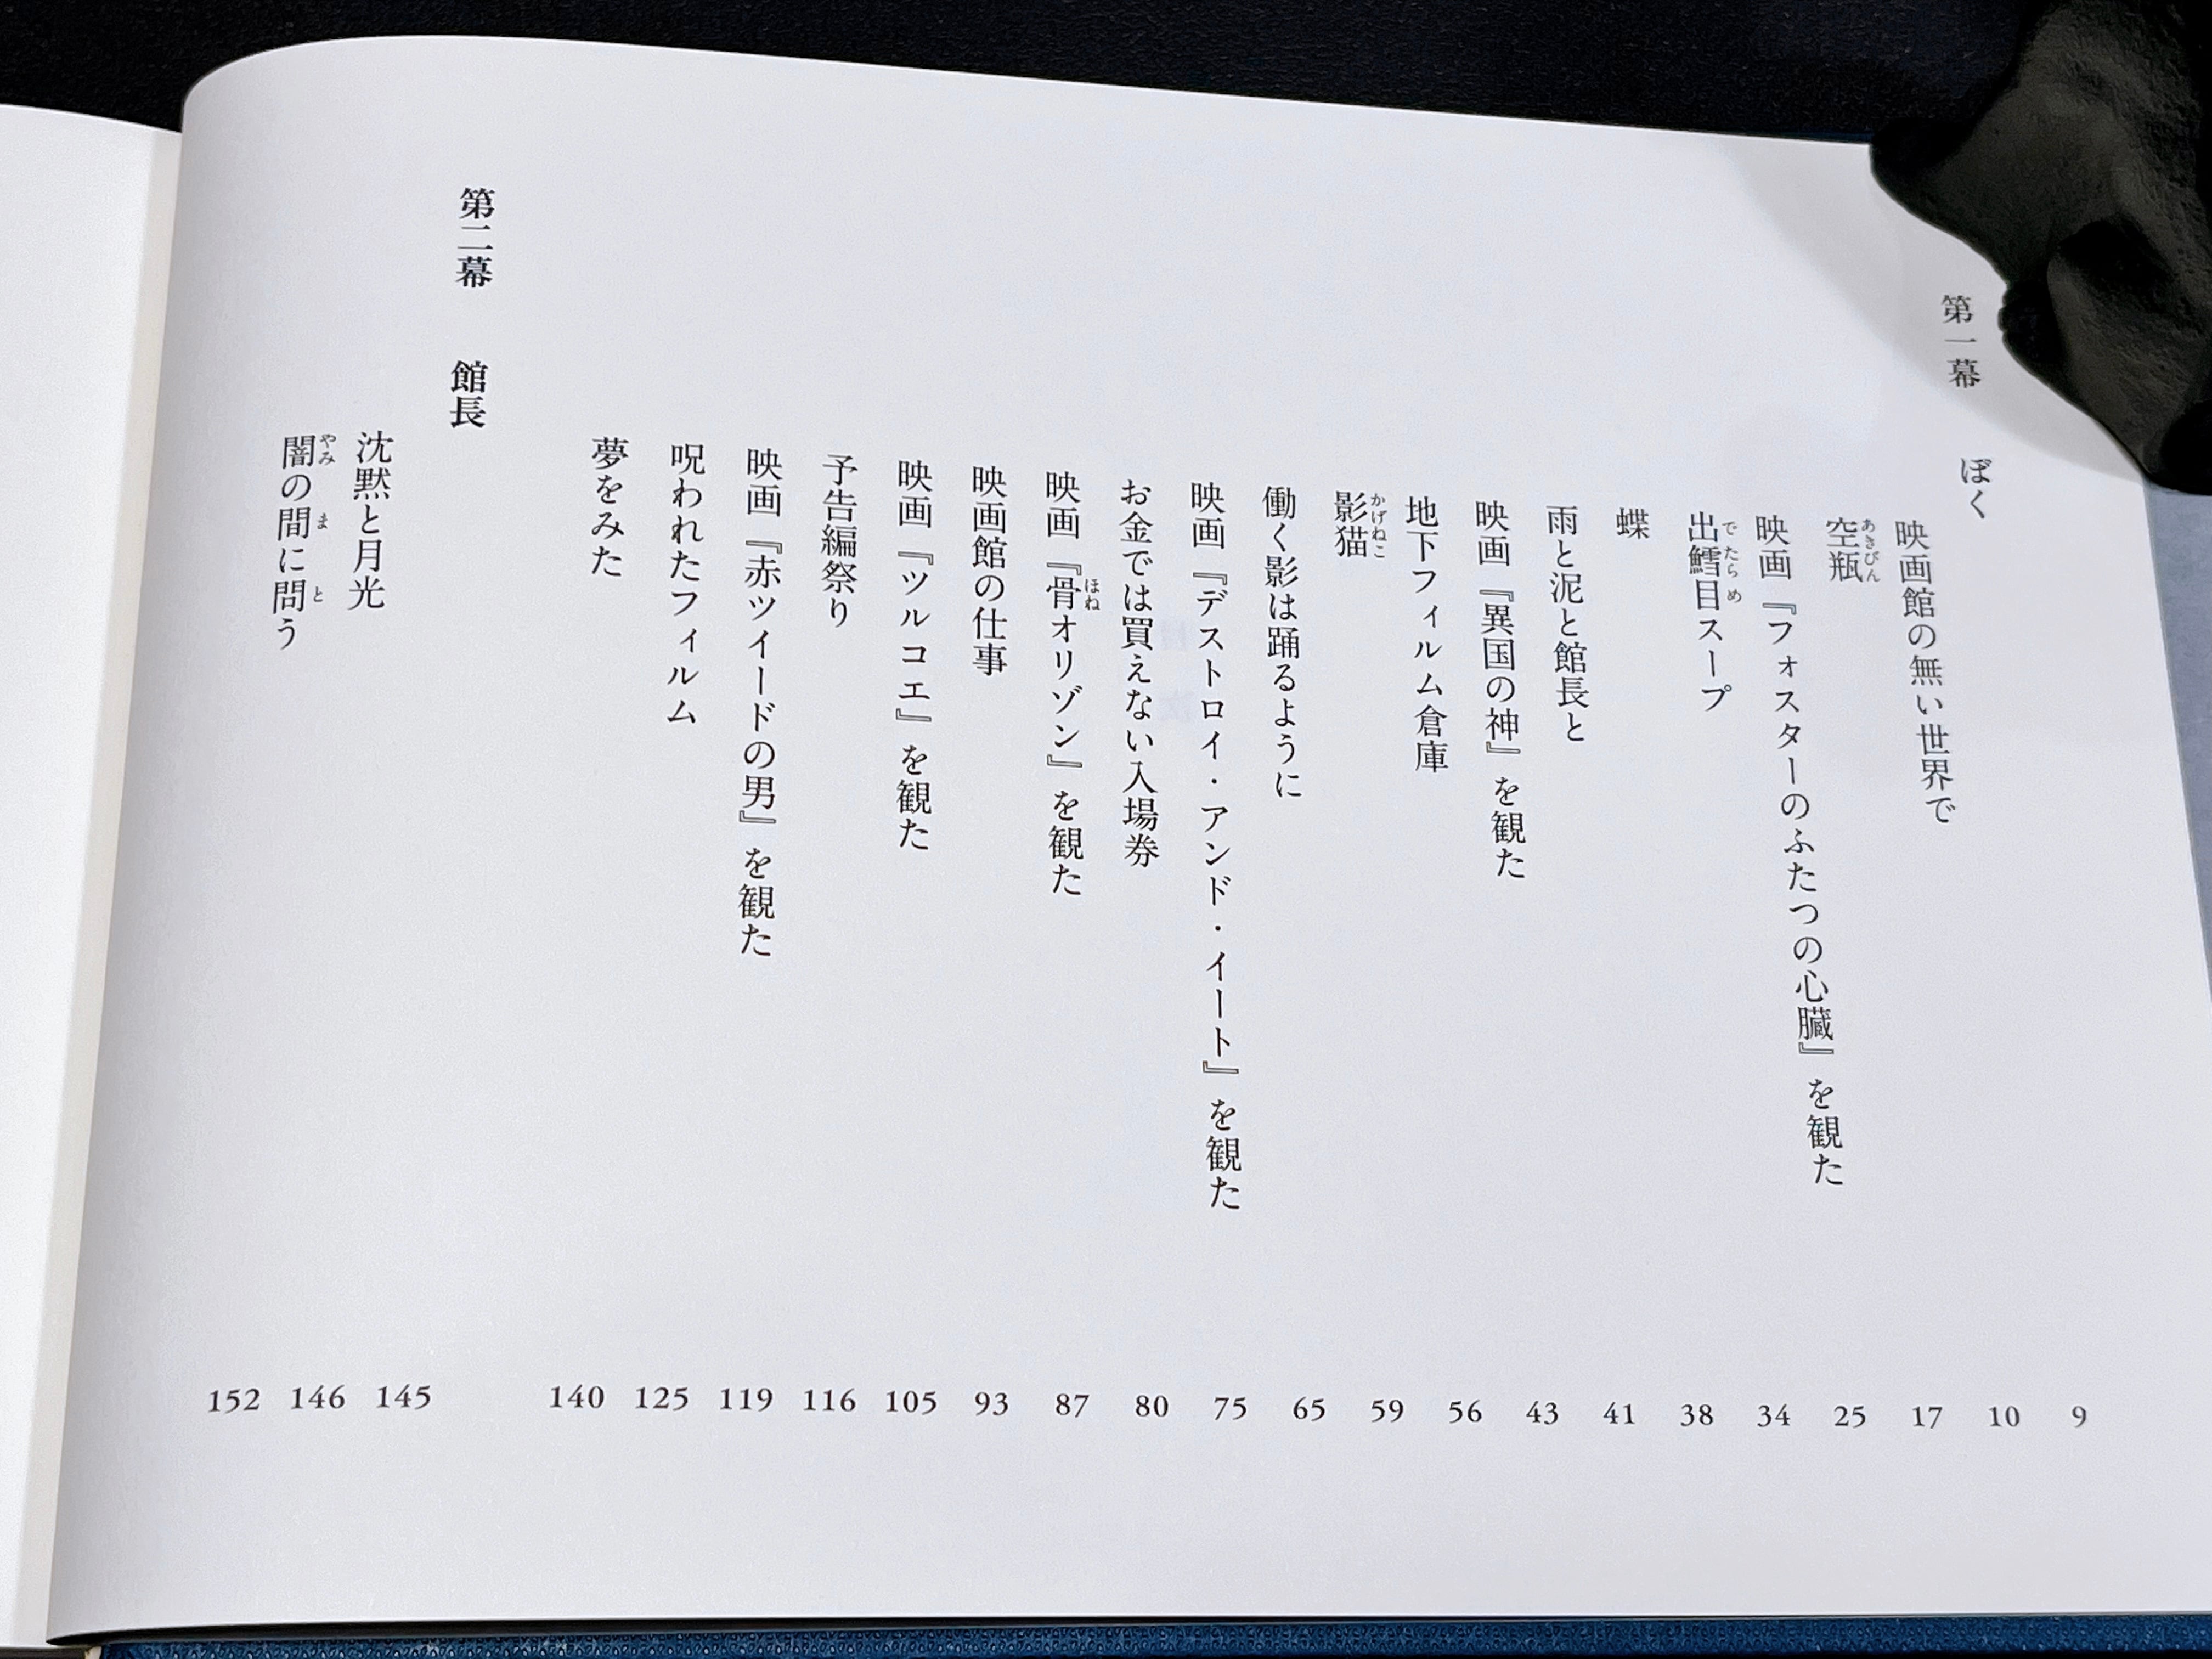 第一幕 ぼく 9
映画館の無い世界で 10
空瓶 あきびん 17
映画『フォスターのふたつの心臓』を観た 25
出鱈目スープ でたらめ 34
蝶 38
雨と泥と館長と 41
映画『異国の神』を観た 43
地下フィルム倉庫 56
影猫 かげねこ 59
働く影は踊るように 65
映画『デストロイ・アンド・イート』を観た 75
お金では買えない入場券 80
映画『骨オリゾン』を観た ほね 87
映画館の仕事 93
映画『ツルコエ』を観た 105
予告編祭り 116
映画『赤ツイードの男』を観た 119
呪われたフィルム 125
夢をみた 140
第二幕 館長 145
沈黙と月光 146
闇の間に問う やみ ま と 152